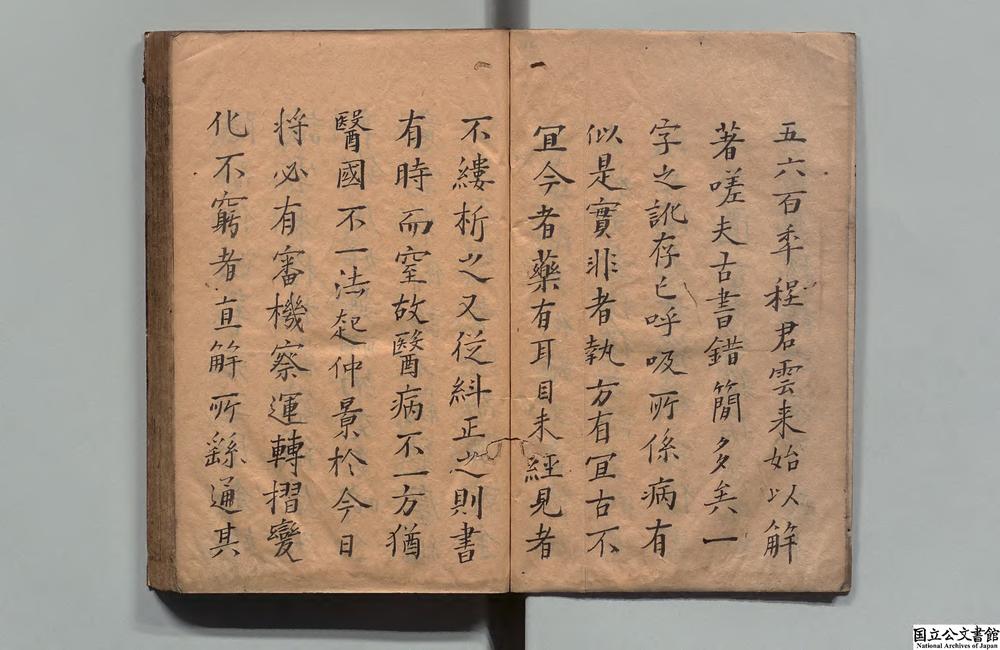 五六百年程君雲来始以解
著嗟夫古書錯簡多矣一
字之訛存亡呼吸所係病有
似是實非者執方有宜古不
宜今者藥有耳目未經見者
不縷析之又從糾正之則書
有時而窒故醫病不一方猶
醫國不一法起仲景於今日
将必有審機察運轉摺變
化不窮者直解所繇通其
国立公文書館
National Archives of Japan